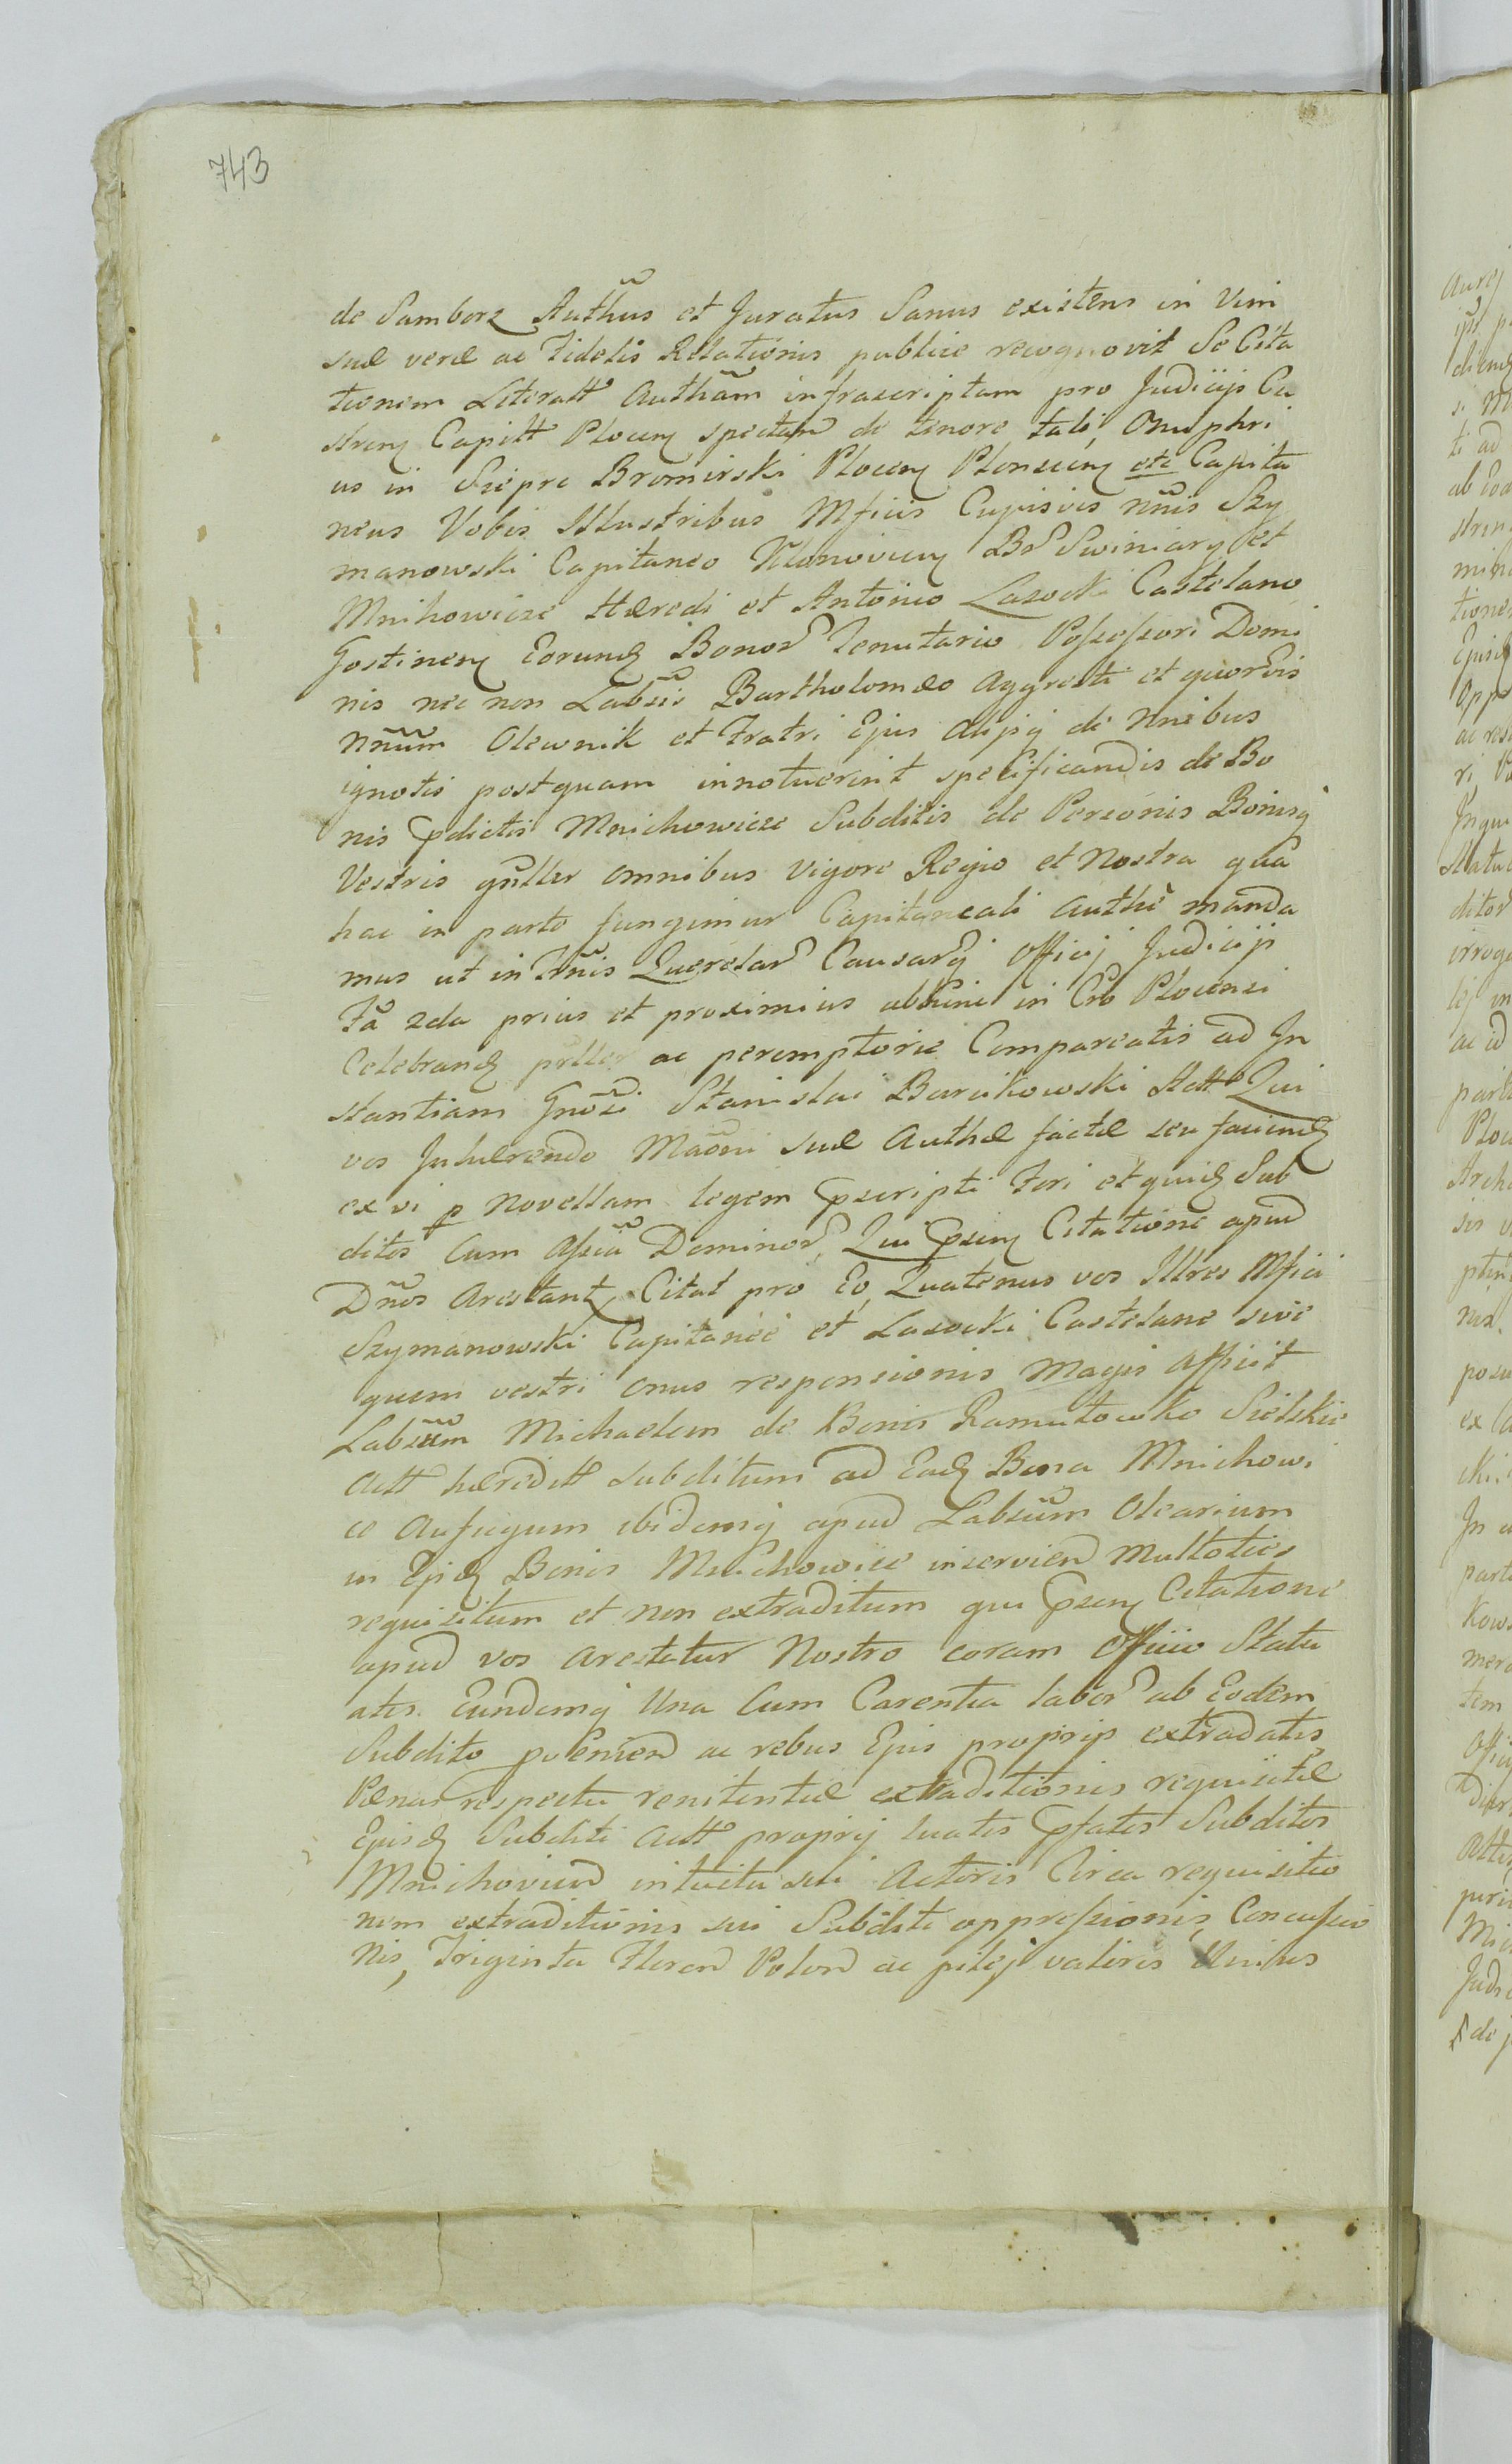 743
de Samborz Authũs et Juratus Sanus existens in Vim
suæ veræ ac Fidelis Relationis publice recognovit Se Cita
tionem Literatt Authãm infrascriptam pro Judicijs Ca
stren Capitt Plocen spectan de tenore tali, Onuphri
us in Sieprc Bromirski Plocen Plonscen etc Capita
neus Vobis Illustribus Mficis Cujusvis nñis Szy
manowski Capitaneo Klonovicen Br Swiniary et
Mnihowicze Hæredi et Antonio Lasocki Castelano
Gostinen Eorund Bonor Tenutario Possessori Domi
nis nec non Labsis Bartholomæo Aggresti et quorvis
nñum Olewnik et Fratri Ejus Alijq de Nnibus
ignotis postquam innotuerint specificandis de Bo
nis pdictis Mnichowicze Subditis de Personis Bonisq
Vestris gñller omnibus Vigore Regio et Nostra qua
hac in parte fungimur Capitaneali Authe manda
mus ut in Trñis Querelar Causarq Officij Judicijs
Fã 2da prius et proximius abhinc in Cro Plocensi
Celebrand prller ac peremptorie Compareatis ad In
stantiam Gnosi Stanislai Barcikowski Actt Qui
vos Inhærendo Maõni suæ Authæ factæ seu faciend
ex vi p Novellam legem pscripti Fori et quid Sub
ditos Cum Assiã Dominor, Qui psen Citatione apud
Dños Arestant Citat pro Eo, Quatenus vos Illres Mfici
Szymanowski Capitanee et Lasocki Castelane sive
quem vestri onus responsionis Magis Afficit
Labsum Michaelem de Bonis Ramutowko Sielskie
Actt hæreditt subditum ad Ead Bona Mnichowi
ce Aufugum ibidemq apud Labsum Olearium
in Ejsd Bonis Mnichowice inservien Multoties
requisitum et non extraditum qui psen Citatione
apud vos arestatur Nostro coram Officio Statu
atis Eundemq Una Cum Carentia labor ab Eodem
Subdito ac rebus Ejus proprijs extradatis
Pænas respectu renitentiæ extraditionis requisitæ
Ejusd Subditi Actt proprij luatis pfatos Subditos
Mnichovien intuitu sui Actoris Circa requisitio
nem extraditionis sui Subditi oppressionis, Concussio
nis, Triginta Floren Polon ac pilej valoris Unius